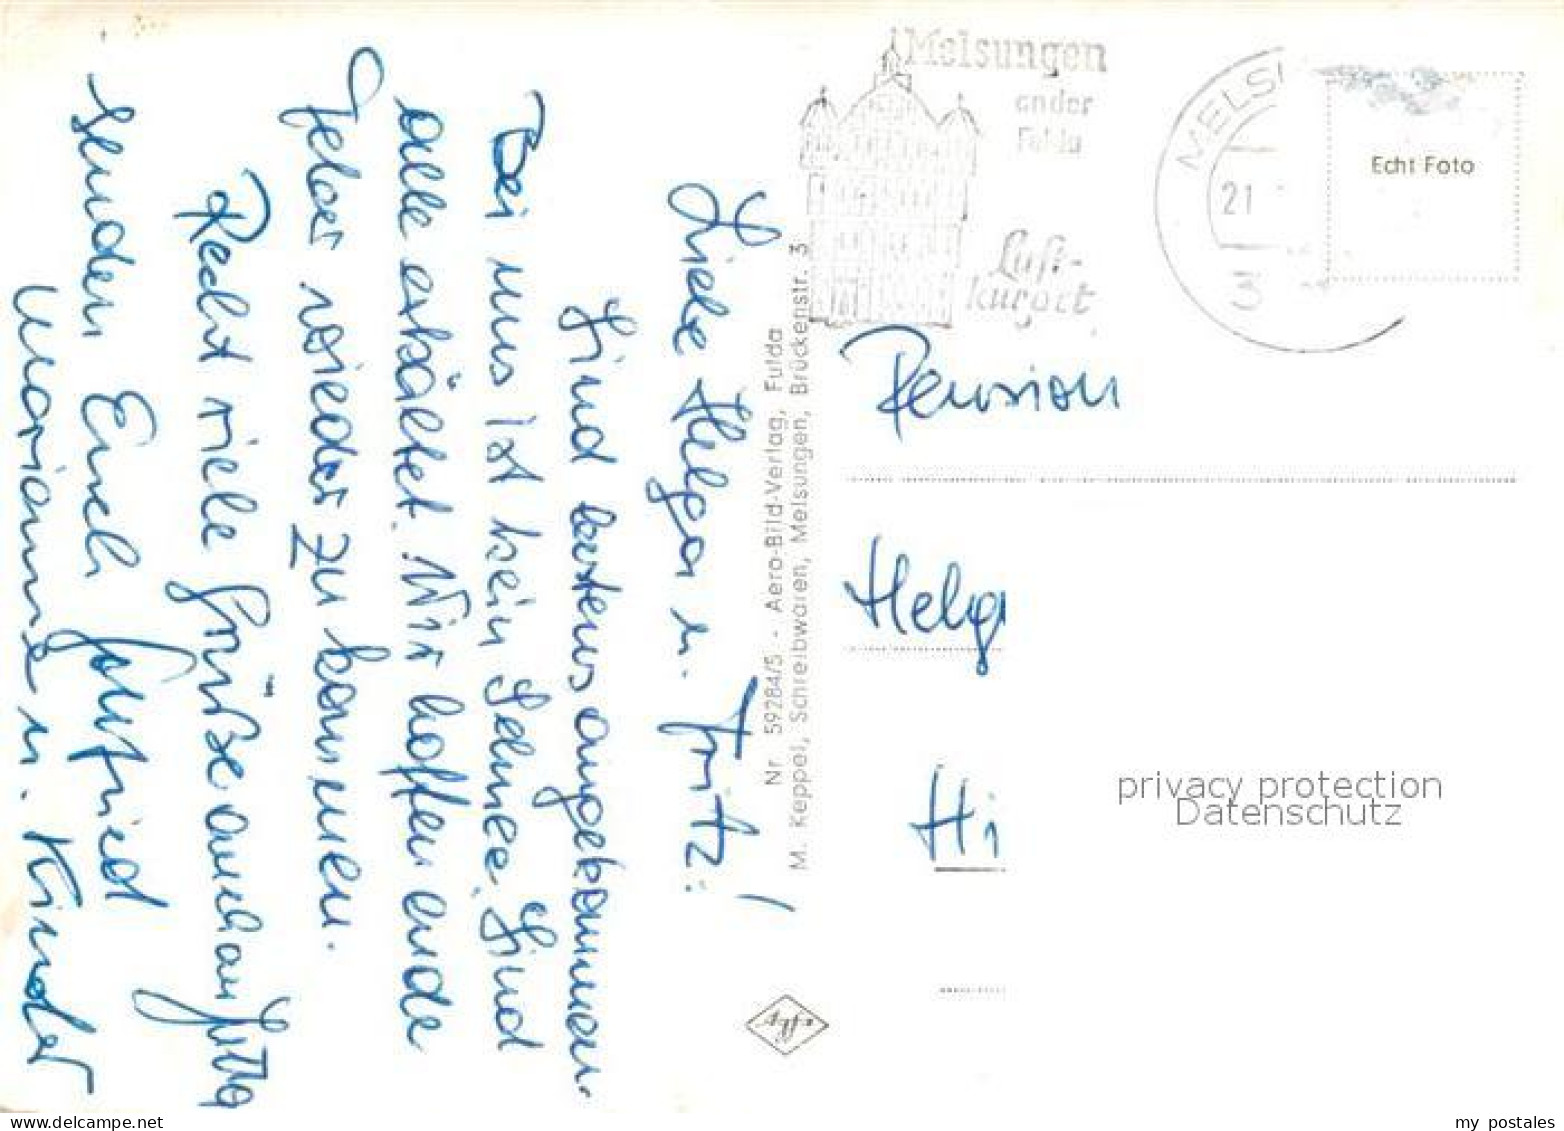 Liebe Helga u. Fritz!
Sind bestens angekommen.
Bei uns ist kein Schnee. Sind
alle erkältet. Wir hoffen ende
Febar wieder zu kommen.
Recht viele Grüße auch an Jutta
senden Euch Gottfried
Marianne u. Kinder
Nr. 59284/5 - Aero-Bild-Verlag, Fulda
M. Keppel, Schreibwaren, Melsungen, Brückenstr. 3
Melsungen
an der
Fulda
Luft-
kurort
MELSU
21
3
Echt Foto
Pension
Helga
Hi
privacy protection
Datenschutz
my postales